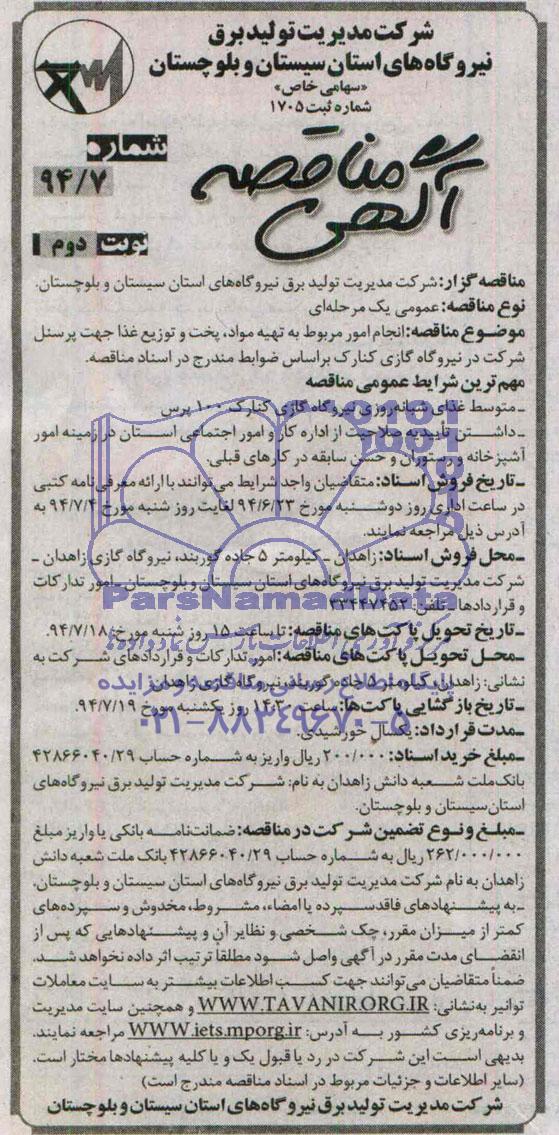 شرکت مدیریت تولید برق
نیروگاه‌های استان سیستان و بلوچستان
«سهامی خاص»
شماره ثبت ۱۷۰۵
آگهی مناقصه
شماره
۹۴/۷
نوبت دوم
مناقصه گزار: شرکت مدیریت تولید برق نیروگاه‌های استان سیستان و بلوچستان.
نوع مناقصه: عمومی یک مرحله‌ای
موضوع مناقصه: انجام امور مربوط به تهیه مواد، پخت و توزیع غذا جهت پرسنل
شرکت در نیروگاه گازی کنارک براساس ضوابط مندرج در اسناد مناقصه.
مهم ترین شرایط عمومی مناقصه
ـ متوسط غذای شبانه‌روزی نیروگاه گازی کنارک ۱۰۰ پرس
ـ داشتن تأییدیه صلاحیت از اداره کار و امور اجتماعی استان در زمینه امور
آشپزخانه و رستوران و حسن سابقه در کارهای قبلی.
ـ تاریخ فروش اسناد: متقاضیان واجد شرایط می‌توانند با ارائه معرفی‌نامه کتبی
در ساعت اداری روز دوشنبه مورخ ۹۴/۶/۲۳ لغایت روز شنبه مورخ ۹۴/۷/۴ به
آدرس ذیل مراجعه نمایند.
ـ محل فروش اسناد: زاهدان ـ کیلومتر ۵ جاده گوربند، نیروگاه گازی زاهدان ـ
شرکت مدیریت تولید برق نیروگاه‌های استان سیستان و بلوچستان ـ امور تدارکات
و قراردادها ـ تلفن: ۳۳۴۴۷۴۵۳
ParsNamadData
ـ تاریخ تحویل پاکت‌های مناقصه: تا ساعت ۱۵ روز شنبه مورخ ۹۴/۷/۱۸.
ـ محل تحویل پاکت‌های مناقصه: امور تدارکات و قراردادهای شرکت به
نشانی: زاهدان، کیلومتر ۵ جاده گوربند، نیروگاه گازی زاهدان.
پایگاه اطلاع رسانی مناقصه و مزایده
ـ تاریخ بازگشایی پاکت‌ها: ساعت ۱۴:۳۰ روز یکشنبه مورخ ۹۴/۷/۱۹.
۰۲۱-۸۸۳۴۹۶۷۰-۵
ـ مدت قرارداد: یکسال خورشیدی.
ـ مبلغ خرید اسناد: ۲۰۰/۰۰۰ ریال واریز به شماره حساب ۴۲۸۶۶۰۴۰/۲۹
بانک ملت شعبه دانش زاهدان به نام: شرکت مدیریت تولید برق نیروگاه‌های
استان سیستان و بلوچستان.
ـ مبلغ و نوع تضمین شرکت در مناقصه: ضمانت‌نامه بانکی یا واریز مبلغ
۲۶۲/۰۰۰/۰۰۰ ریال به شماره حساب ۴۲۸۶۶۰۴۰/۲۹ بانک ملت شعبه دانش
زاهدان به نام شرکت مدیریت تولید برق نیروگاه‌های استان سیستان و بلوچستان.
ـ به پیشنهادهای فاقد سپرده یا امضاء، مشروط، مخدوش و سپرده‌های
کمتر از میزان مقرر، چک شخصی و نظایر آن و پیشنهادهایی که پس از
انقضای مدت مقرر در آگهی واصل شود مطلقا ترتیب اثر داده نخواهد شد.
ضمناً متقاضیان می‌توانند جهت کسب اطلاعات بیشتر به سایت معاملات
توانیر به‌نشانی: WWW.TAVANIR.ORG.IR و همچنین سایت مدیریت
و برنامه‌ریزی کشور به آدرس: WWW.iets.mporg.ir مراجعه نمایند.
بدیهی است این شرکت در رد یا قبول یک و یا کلیه پیشنهادها مختار است.
(سایر اطلاعات و جزئیات مربوط در اسناد مناقصه مندرج است)
شرکت مدیریت تولید برق نیروگاه‌های استان سیستان و بلوچستان